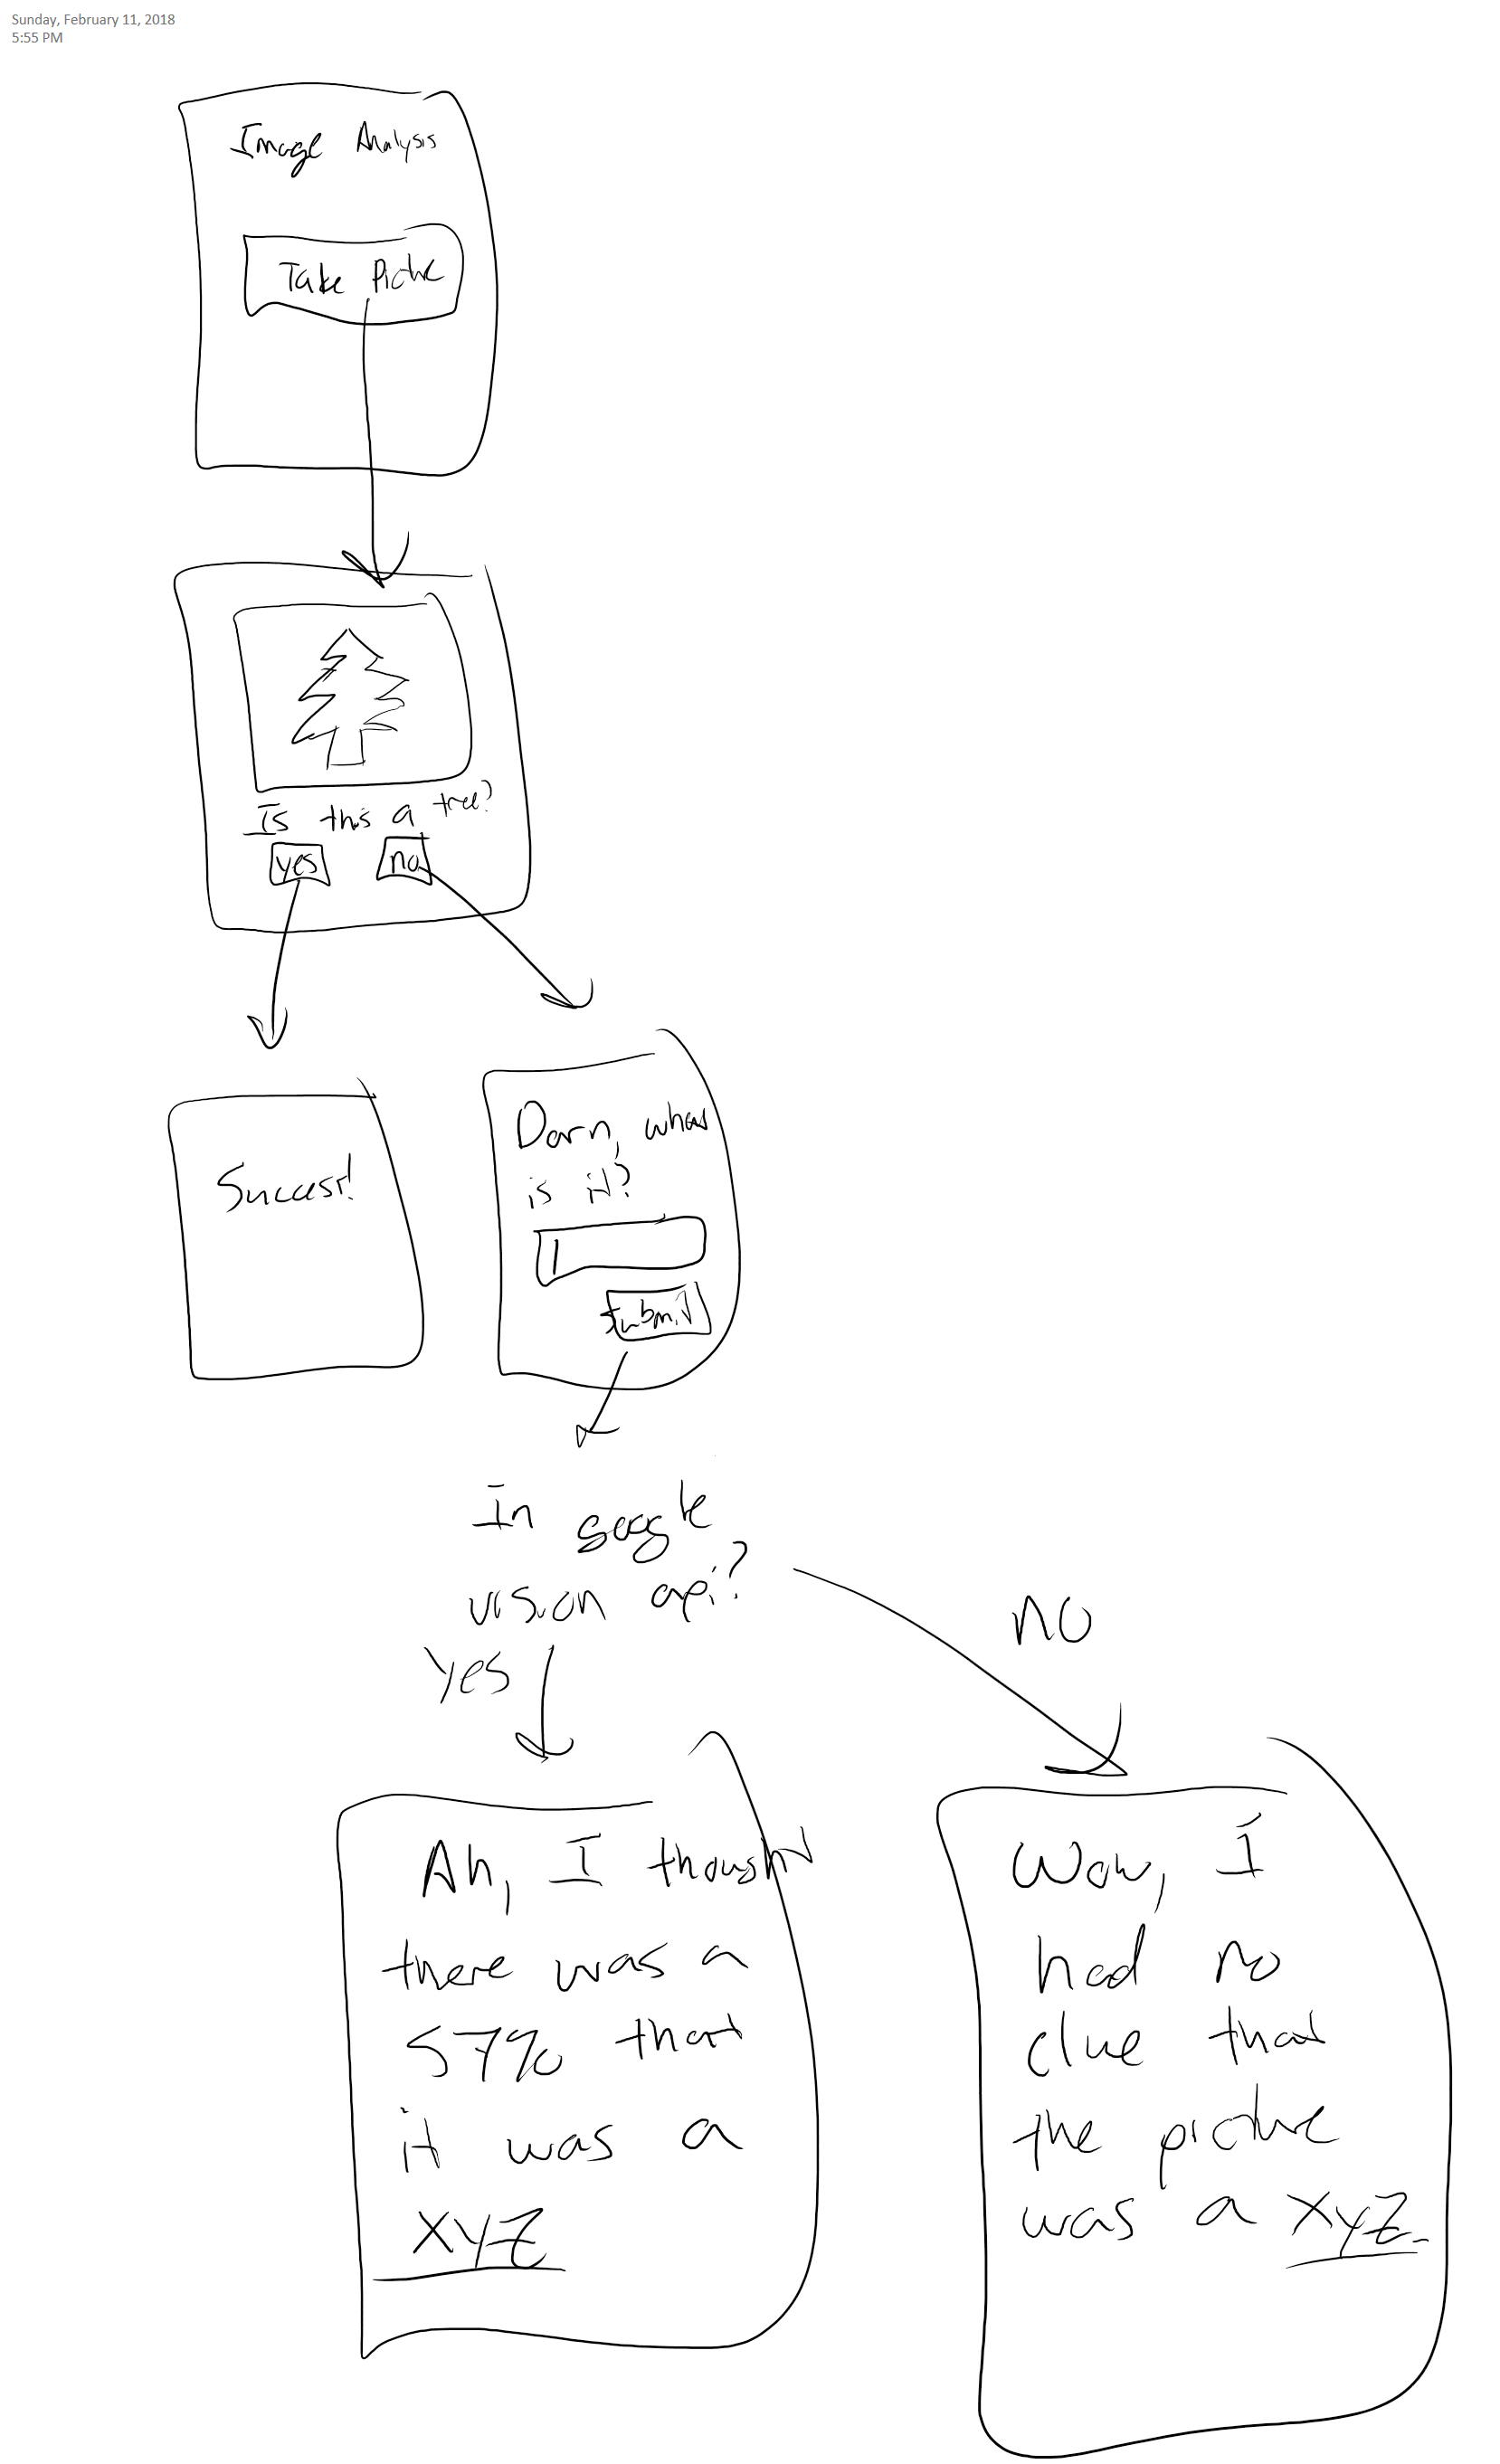 Sunday, February 11, 2018
5:55 PM
Image Analysis
Take Picture
Is this a tree?
yes no
Success!
Darn, what
is it?
Submit
In google
vision api?
Yes
NO
Ah, I thought
there was a
57% that
it was a
XYZ
Wow, I
had no
clue that
the picture
was a XYZ.